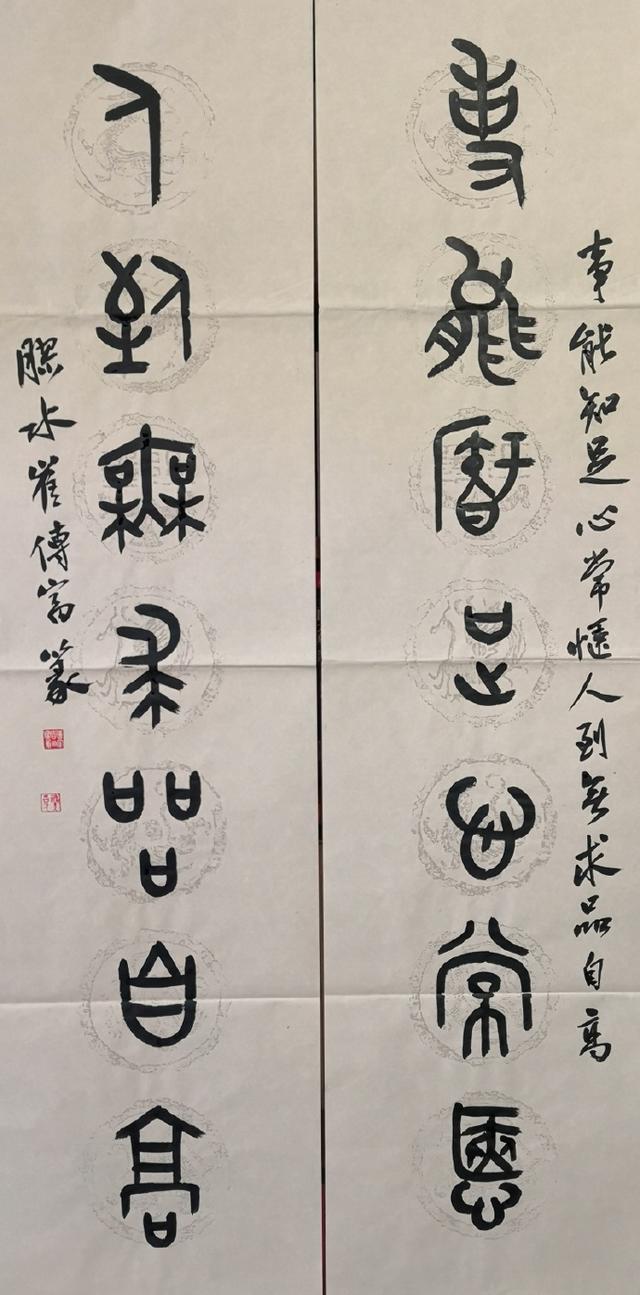 事能知足心常愜人到無求品自高
事能知足心常愜
人到無求品自高
膠水崔傳富篆